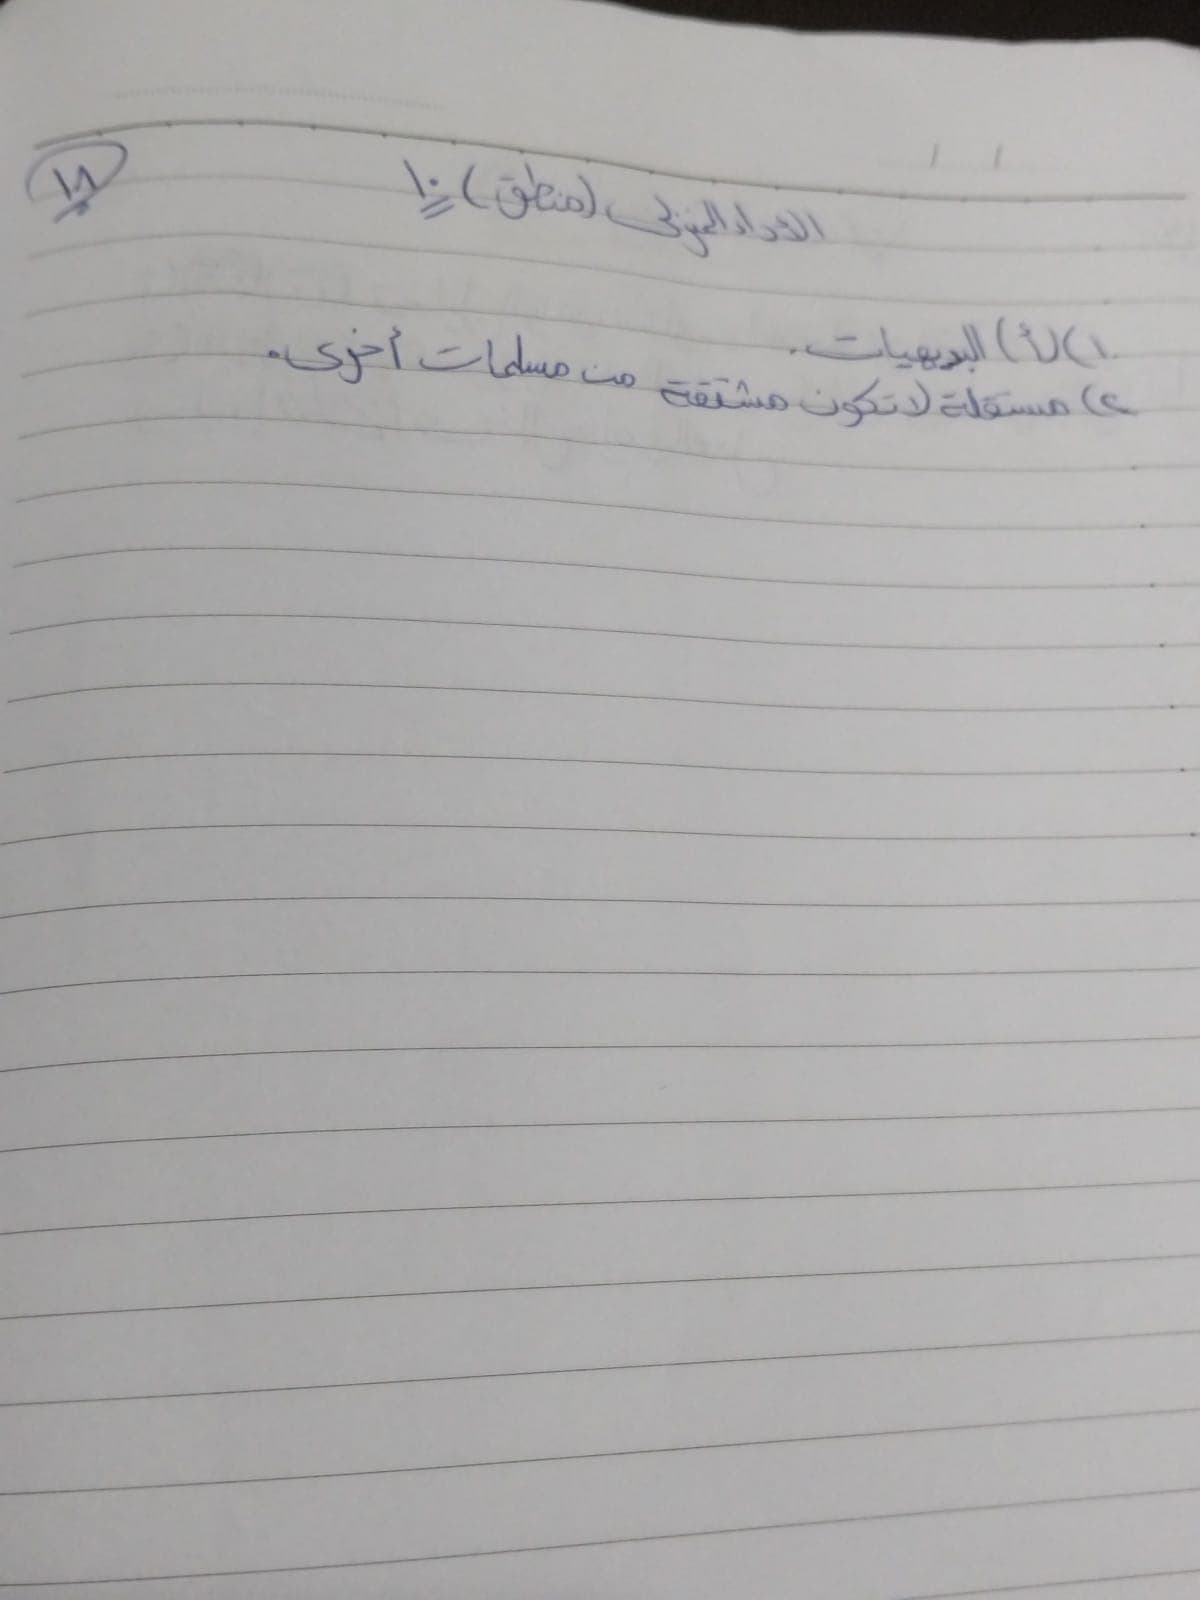 الاداء المنزلى (منطق) ١٠
١٨
١) (أ) البديهيات.
٢) مستقلة لا تكون مشتقة من مسلمات أخرى.